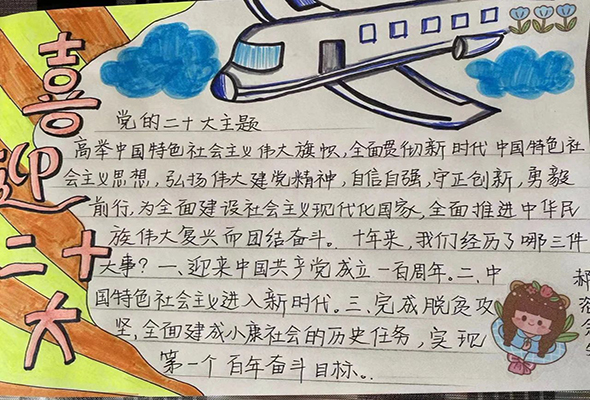 喜迎二十大
党的二十大主题
高举中国特色社会主义伟大旗帜,全面贯彻新时代中国特色社
会主义思想,弘扬伟大建党精神,自信自强,守正创新,勇毅
前行,为全面建设社会主义现代化国家、全面推进中华民
族伟大复兴而团结奋斗。十年来,我们经历了哪三件
大事?一、迎来中国共产党成立一百周年。二、中
国特色社会主义进入新时代。三、完成脱贫攻
坚,全面建成小康社会的历史任务,实现
第一个百年奋斗目标。